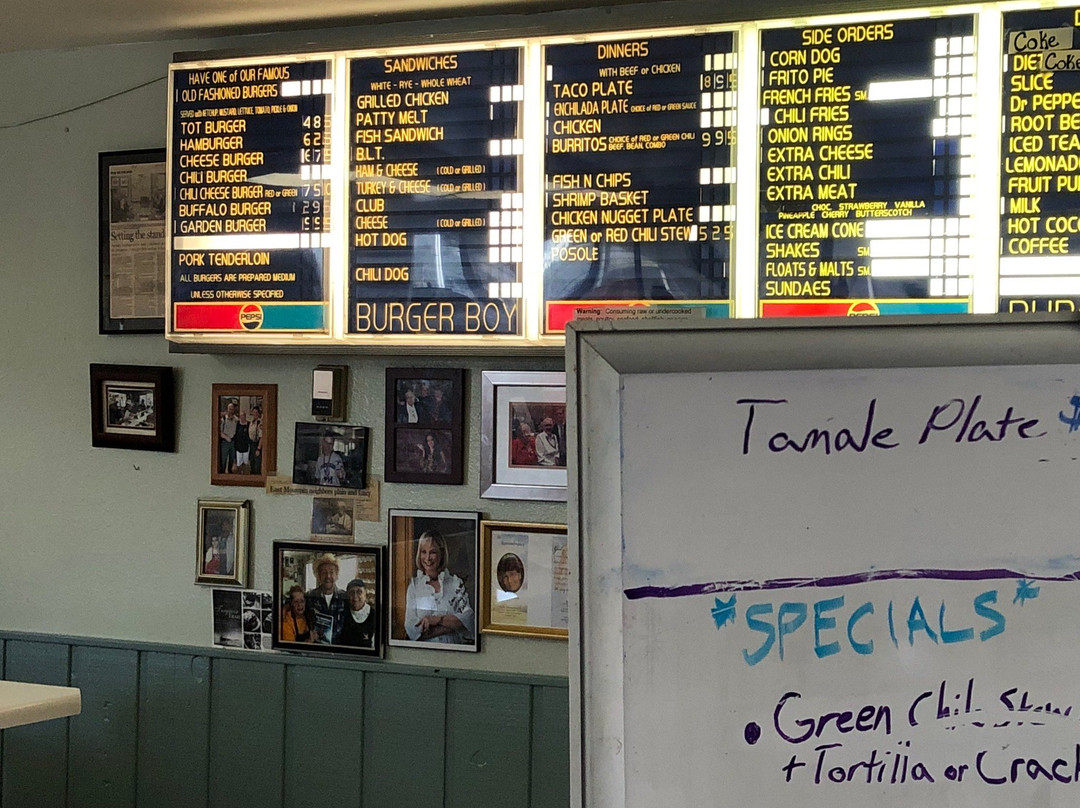 HAVE ONE of OUR FAMOUS
OLD FASHIONED BURGERS
SERVED with KETCHUP, MUSTARD, LETTUCE, TOMATO, PICKLE & ONION
TOT BURGER 48
HAMBURGER 62
CHEESE BURGER 67
CHILI BURGER
CHILI CHEESE BURGER RED or GREEN 75
BUFFALO BURGER 29
GARDEN BURGER
PORK TENDERLOIN
ALL BURGERS ARE PREPARED MEDIUM
UNLESS OTHERWISE SPECIFIED
PEPSI
SANDWICHES
WHITE - RYE - WHOLE WHEAT
GRILLED CHICKEN
PATTY MELT
FISH SANDWICH
B.L.T.
HAM & CHEESE (COLD or GRILLED)
TURKEY & CHEESE (COLD or GRILLED)
CLUB
CHEESE (COLD or GRILLED)
HOT DOG
CHILI DOG
BURGER BOY
DINNERS
WITH BEEF or CHICKEN
TACO PLATE 895
ENCHILADA PLATE CHOICE of RED or GREEN SAUCE
CHICKEN
BURRITOS CHOICE of RED or GREEN CHILI 995
BEEF, BEAN, COMBO
FISH N CHIPS
SHRIMP BASKET
CHICKEN NUGGET PLATE
GREEN or RED CHILI STEW 525
POSOLE
Warning: Consuming raw or undercooked
SIDE ORDERS
CORN DOG
FRITO PIE
FRENCH FRIES SM.
CHILI FRIES
ONION RINGS
EXTRA CHEESE
EXTRA CHILI
EXTRA MEAT
CHOC. STRAWBERRY VANILLA
PINEAPPLE CHERRY BUTTERSCOTCH
ICE CREAM CONE
SHAKES SM.
FLOATS & MALTS SM.
SUNDAES
PEPSI
Coke
DIET Coke
SLICE
Dr PEPPE
ROOT BE
ICED TEA
LEMONAD
FRUIT PU
MILK
HOT COC
COFFEE
Setting the stand
East Mountain neighbors
Tamale Plate $
*SPECIALS*
• Green Chile Stew
+ Tortilla or Crack